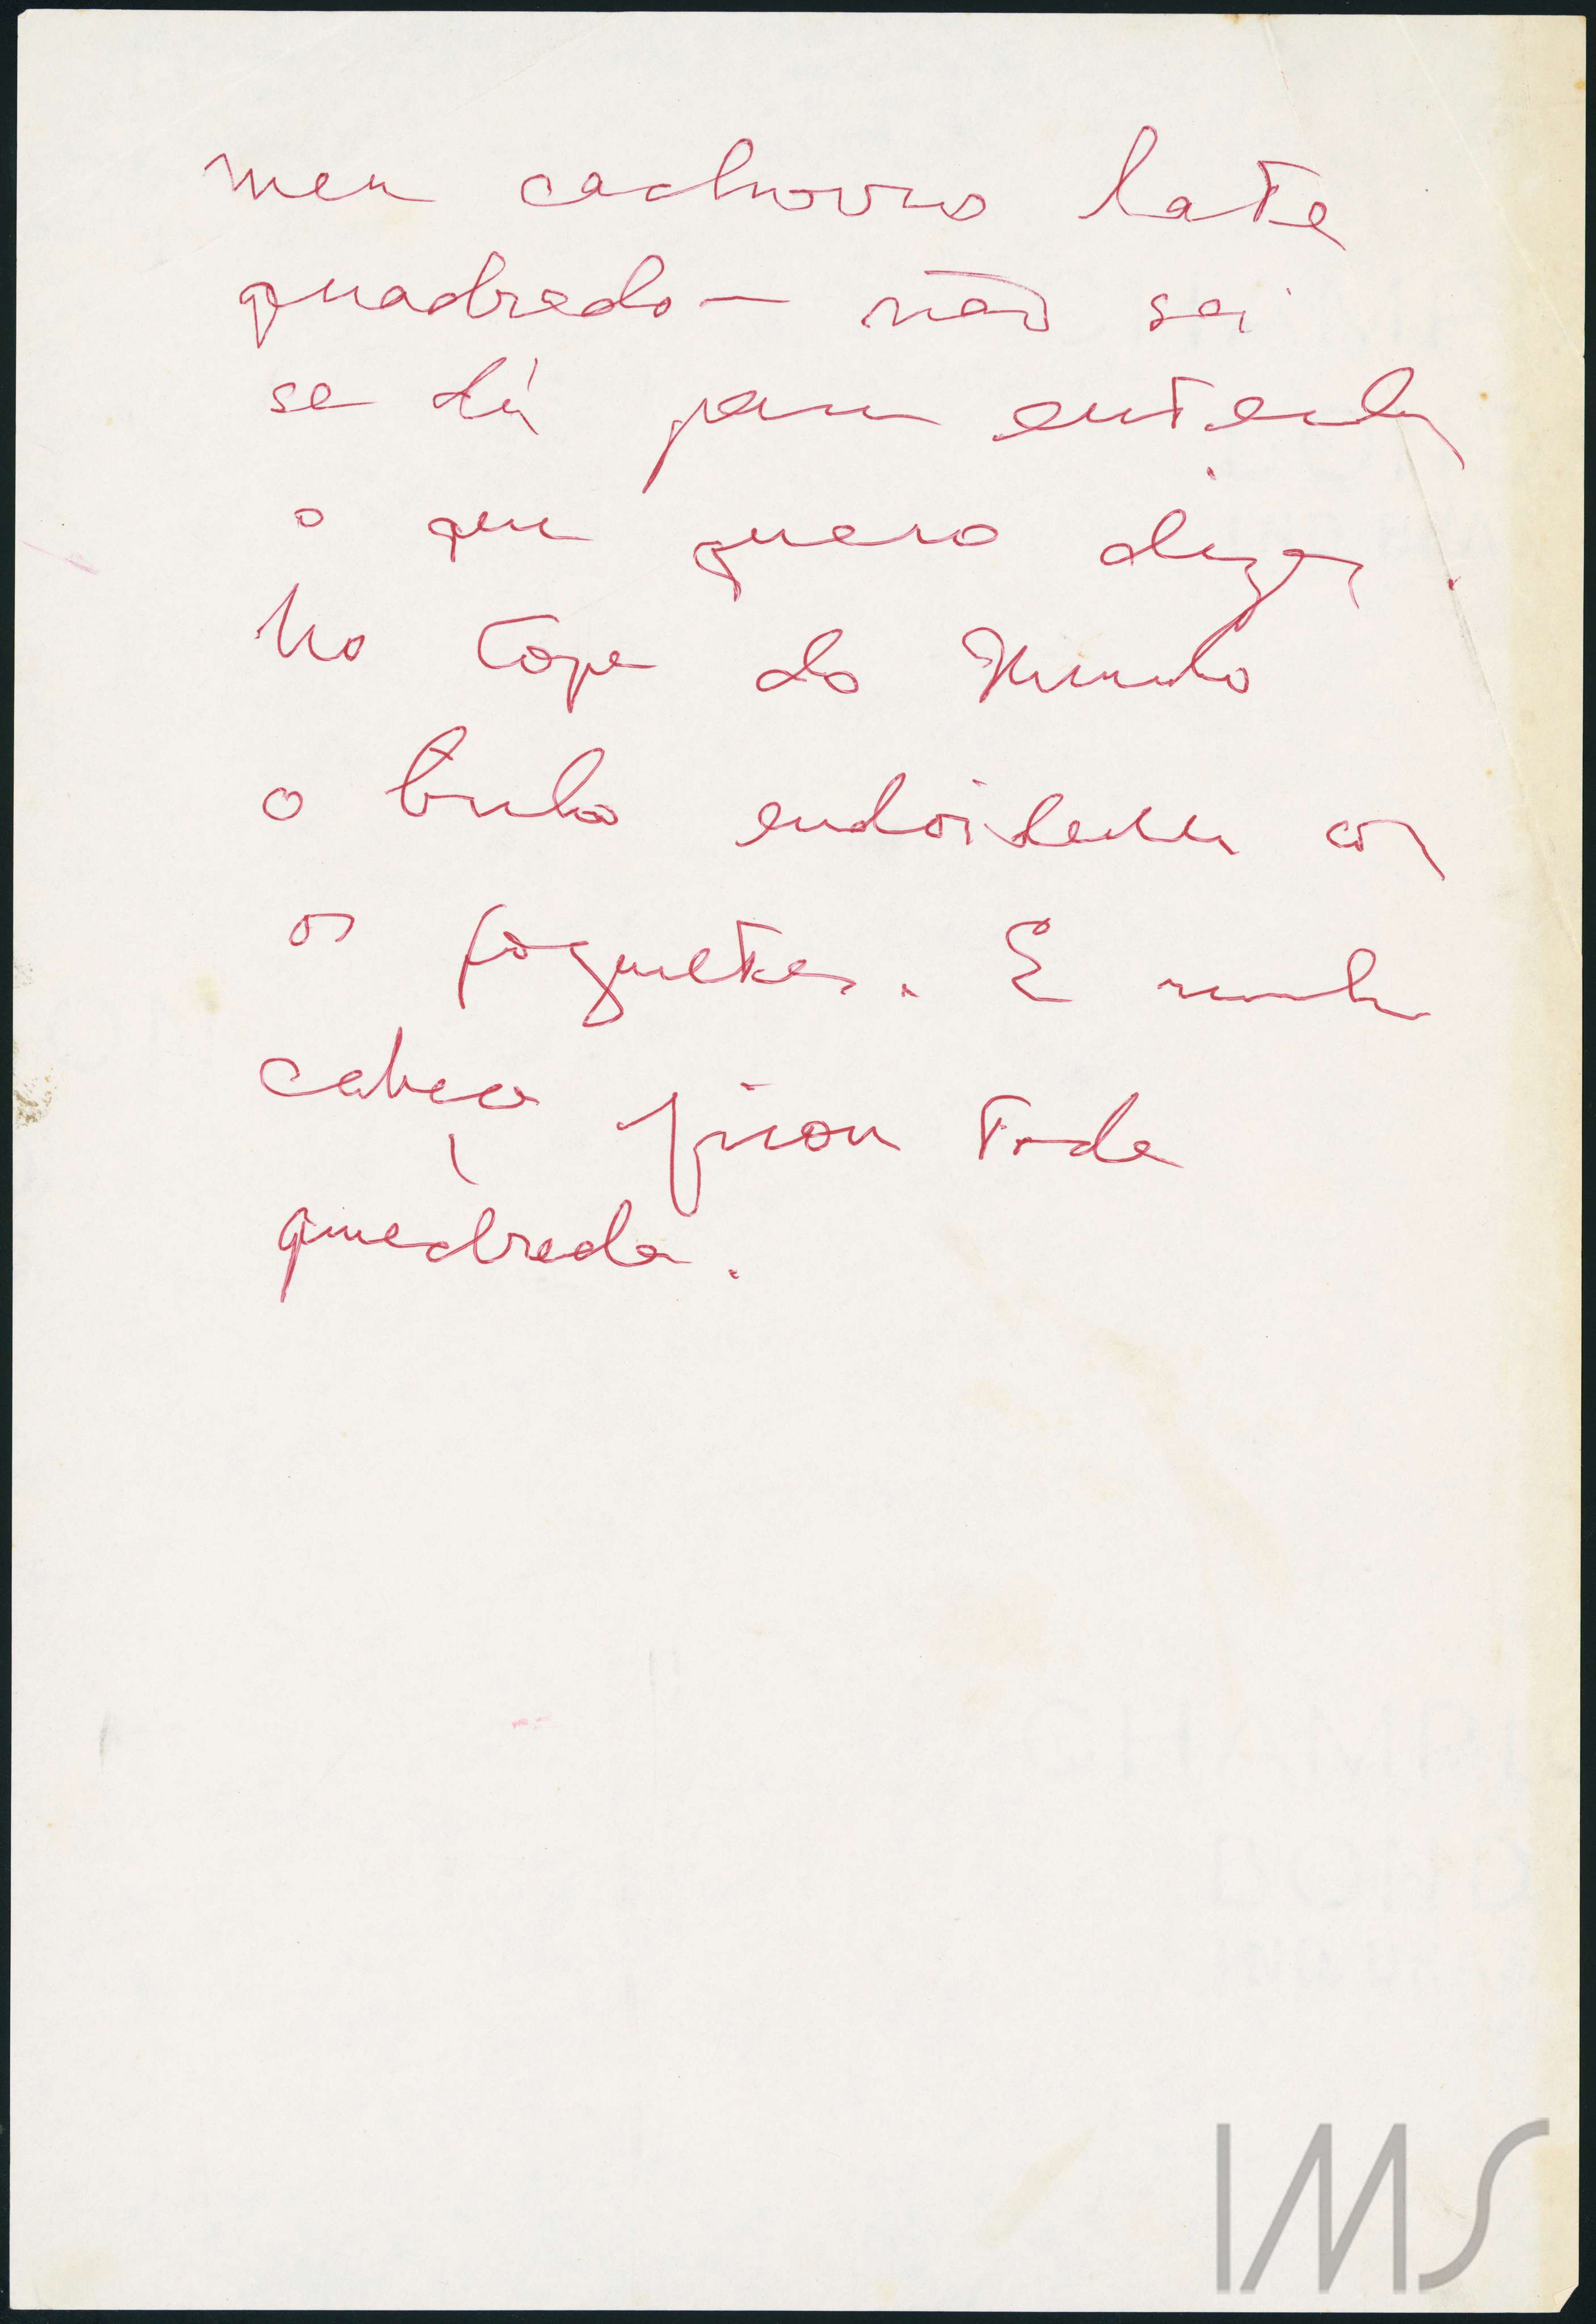 meu cachorro late
quadrado — não sei
se dá para entender
o que quero dizer.
Na Copa do Mundo
o bicho endoideceu com
os foguetes. E minha
cabeça ficou toda
quadrada.
IMS